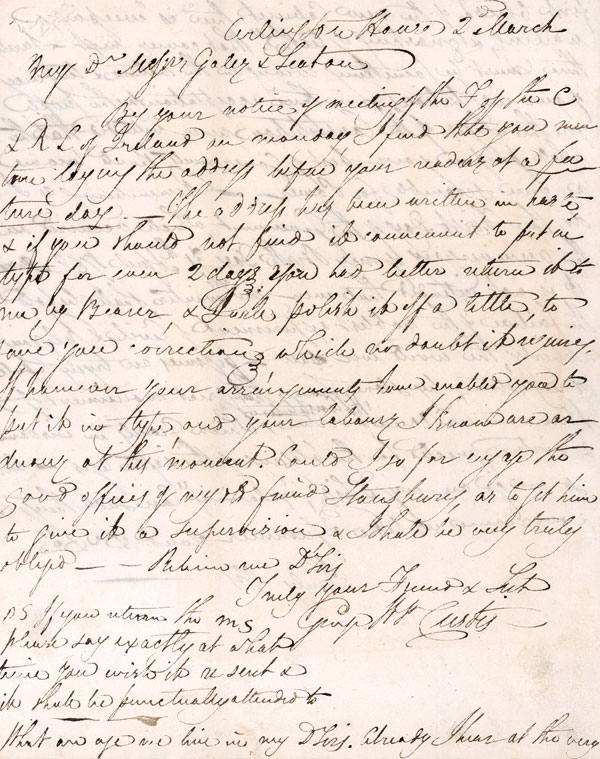 Arlington House 2 March
My Dr Messrs Gales & Seaton
By your notice of meeting of the F of the C
& R L of Ireland on monday, I find that you men
tion laying the address before your readers at a fu
ture day. — The address has been written in haste
& if you should not find it convenient to put in
type for even 2 days you had better return it to
me, by Bearer, & I will polish it off a little, to
save your correction, which no doubt it requires.
If however your arrangements have enabled you to
put it in type and your labours I know are ar
duous at this moment. Could I so far engage the
good offices of my old friend Stansbury as to get him
to give it a supervision & I shall be very truly
obliged — — Believe me Dr Sirs
Truly your Friend & Svt
Geo W P Custis
PS If you return the MS
please say exactly at what
time you wish it sent &
it shall be punctually attended to
What an age we live in my Dr Sirs. Already I hear at the very